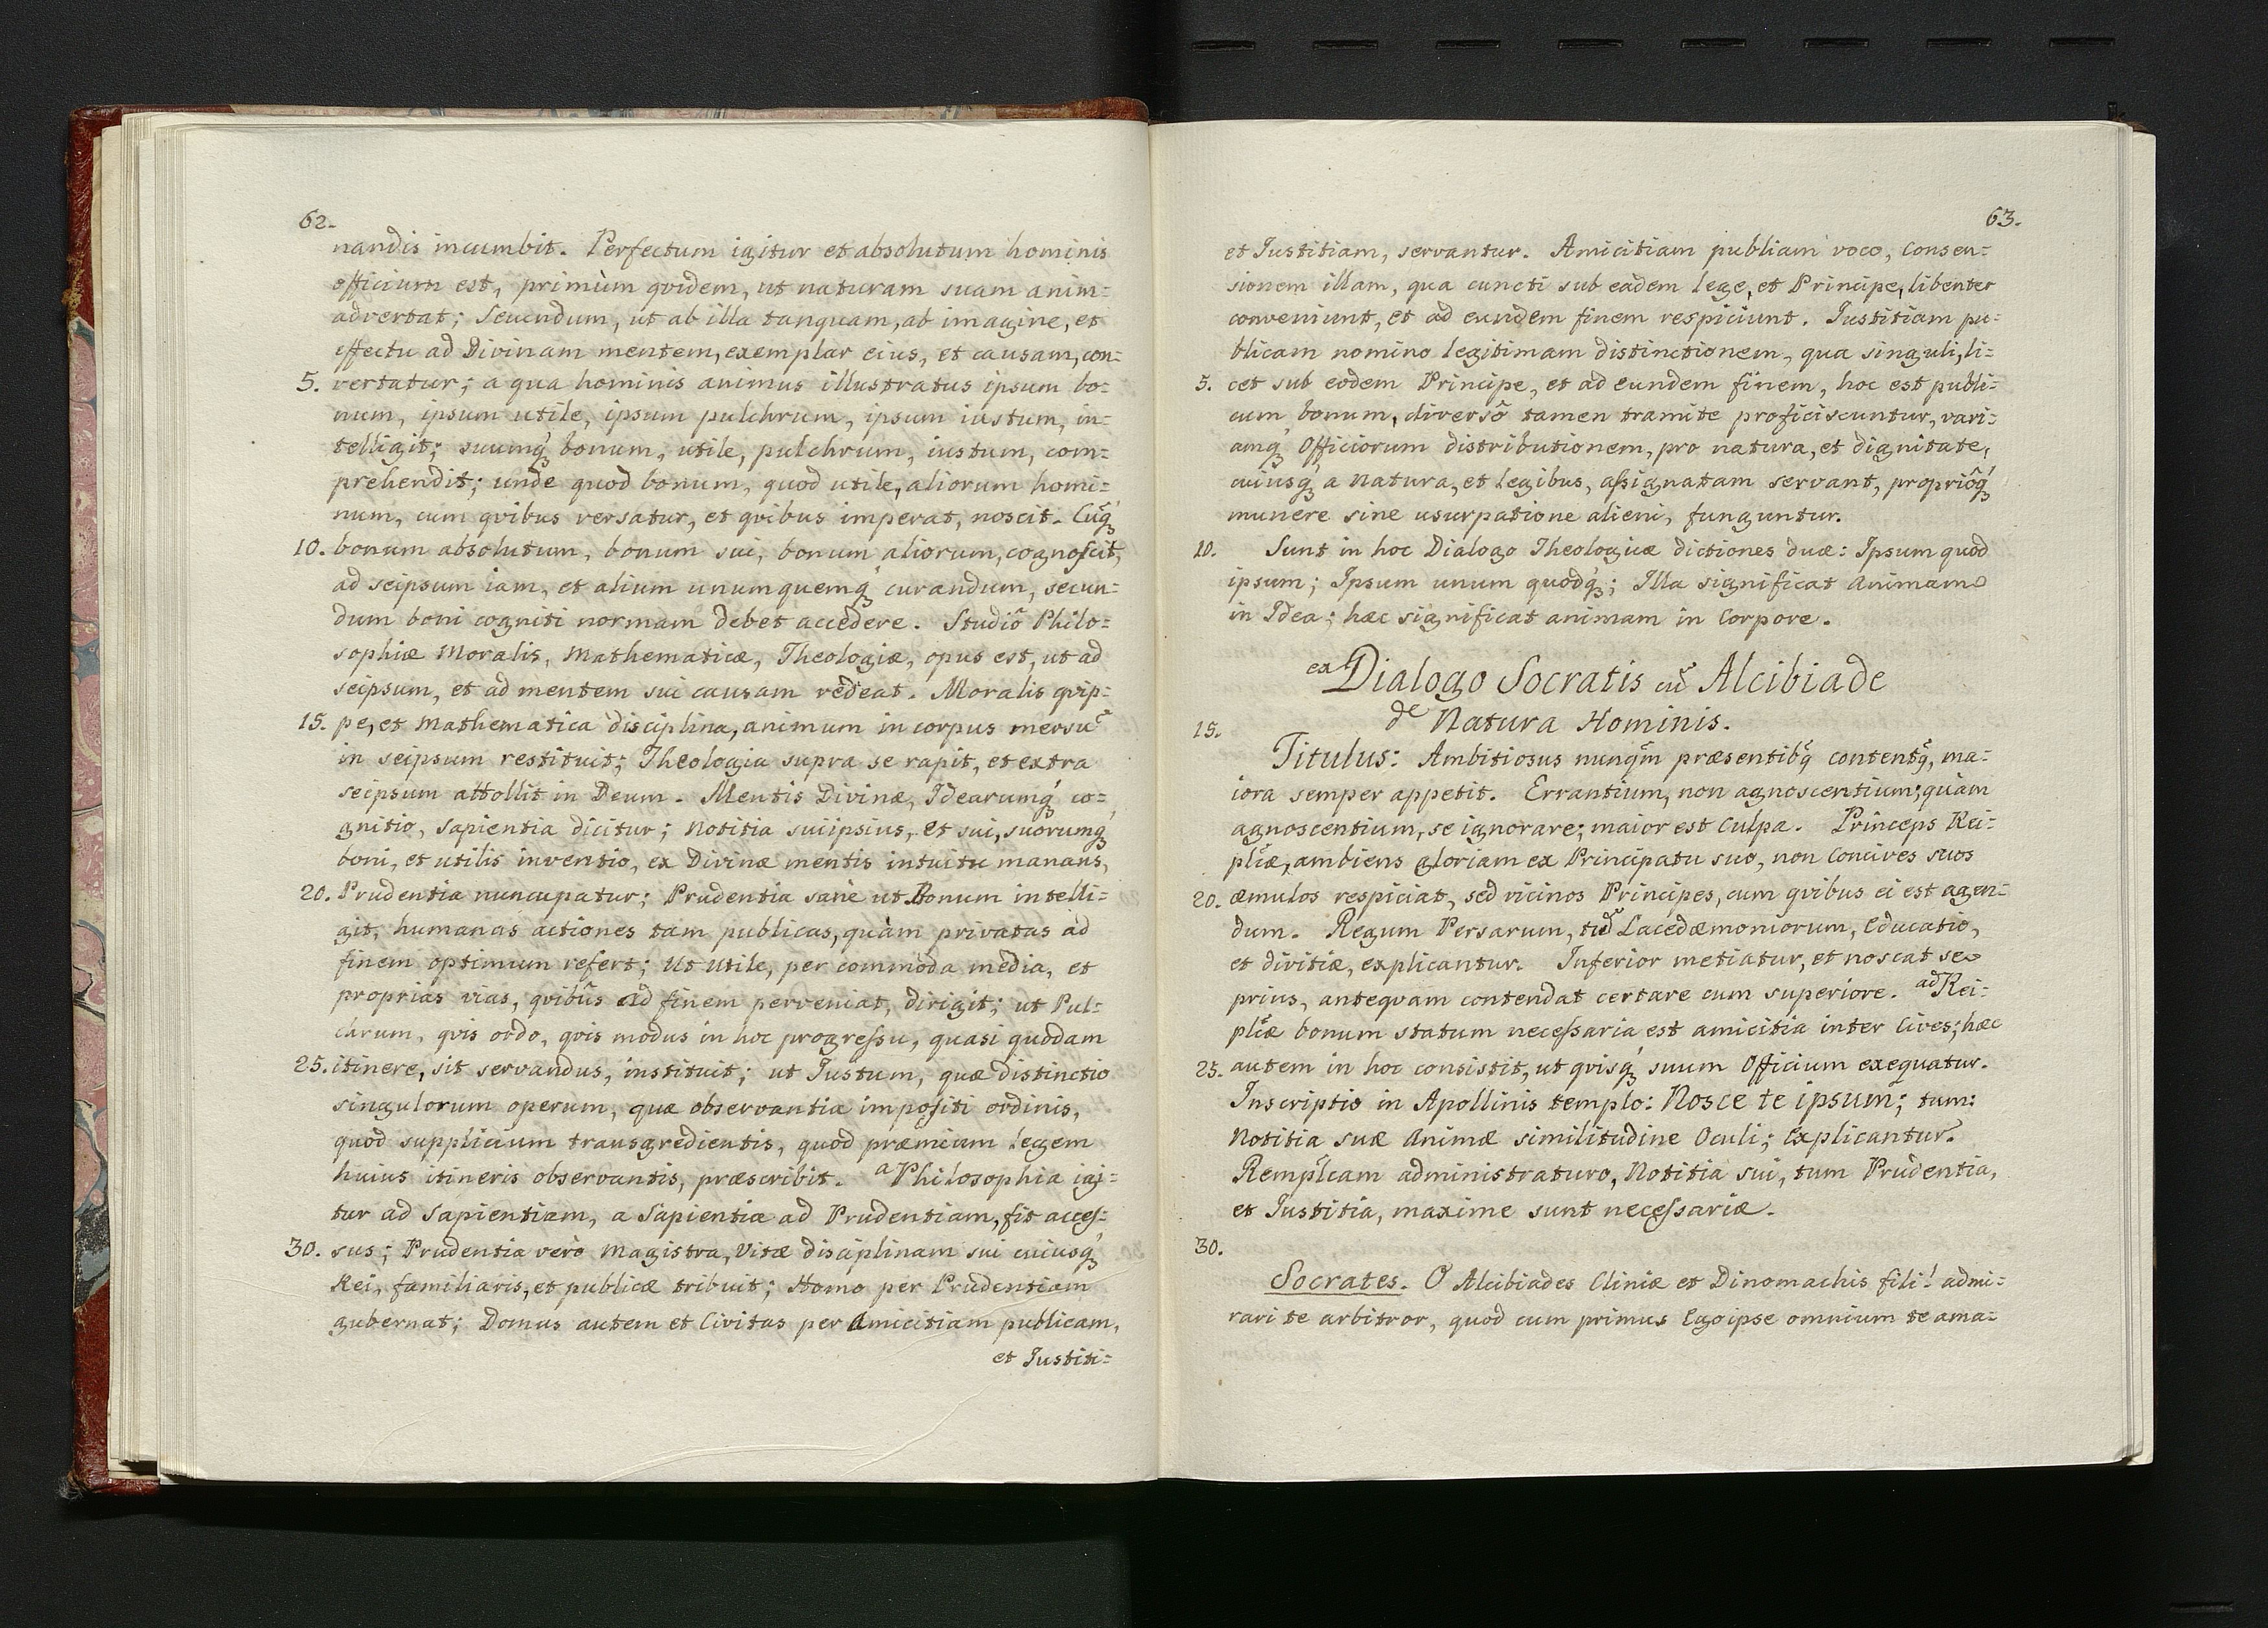 62.
nandis incumbit. Perfectum igitur et absolutum hominis
officium est, primùm qvidem, ut naturam suam anim=
advertat; Secundum, ut ab illa tanquam, ab imagine, et
effectu ad Divinam mentem, exemplar eius, et causam, con=
5. vertatur; a qua hominis animus illustratus ipsum bo=
num, ipsum utile, ipsum pulchrum, ipsum iustum, in=
telligit; suumq́ꝫ bonum, utile, pulchrum, iustum, com=
prehendit; unde quod bonum, quod utile, aliorum homi=
num, cum qvibus versatur, et qvibus imperat, noscit. Cũq́ꝫ
10. bonum absolutum, bonum sui, bonum aliorum, cognoſcit,
ad seipsum iam, et alium unumquemq́ꝫ curandum, secun=
dum boni cogniti normam debet accedere. Studiô Philo=
sophiæ Moralis, Mathematicæ, Theologiæ, opus est, ut ad
seipsum, et ad mentem sui causam redeat. Moralis qvip=
15. pe, et Mathematica disciplina, animum in corpus mersũ
in seipsum restituit; Theologia supra se rapit, et extra
seipsum attollit in Deum. Mentis Divinæ, Idearumq́ꝫ co=
gnitio, Sapientia dicitur; Notitia suiipsius, et sui, suorumq́ꝫ
boni, et utilis inventio, ex Divinæ mentis intuitu manans,
20. Prudentia nuncupatur; Prudentia sanè ut Bonum intelli=
git, humanas actiones tam publicas, quàm privatas ad
finem optimum refert; Ut Utile, per commoda media, et
proprias vias, qvibûs ad finem perveniat, dirigit; ut Pul=
chrum, qvis ordo, qvis modus in hoc progreſsu, quasi quodam
25. itinere, sit servandus, instituit; ut Iustum, quæ distinctio
singulorum operum, quæ observantia impoſiti ordinis,
quod supplicium transgredientis, quod præmium legem
huius itineris observantis, præscribit. a Philosophia igi=
tur ad Sapientiam, a Sapientia ad Prudentiam, fit acceſ=
30. sus; Prudentia verò Magistra, Vitæ disciplinam sui cuiusq́ꝫ
Rei, familiaris, et publicæ tribuit; Homo per Prudentiam
gubernat; Domus autem et Civitas per Amicitiam publicam,
et Iustiti=
63.
et Iustitiam, servantur. Amicitiam publiam voco, Consen=
sionem illam, qua cuncti sub eadem lege, et Principe, libenter
conveniunt, et ad eundem finem respiciunt. Iustitiam pu=
blicam nomino legitimam distinctionem, qua singuli, li=
5. cet sub eodem Principe, et ad eundem finem, hoc est publi=
cum bonum, diversô tamen tramite proficiscuntur, vari=
amq́ꝫ Officiorum distributionem, pro natura, et dignitate,
cuiusq́ꝫ a Natura, et legibus, aſsignatam servant, propriôq́ꝫ
munere sine usurpatione alieni, funguntur.
10. Sunt in hoc Dialogo Theologicæ dictiones duæ: Ipsum quod
ipsum; Ipsum unum quodq́ꝫ; Illa significat Animam
in Idea; hæc significat animam in Corpore.
ex Dialogo Socratis cũ Alcibiade
15. de Natura Hominis.
Titulus: Ambitiosus nunq̃m præsentibq̃ contentq̃, ma=
iora semper appetit. Errantium, non agnoscentium; quàm
agnoscentium, se ignorare; maior est Culpa. Princeps Rei=
plĩæ, ambiens gloriam ex Principatu suo, non Concives suos
20. æmulos respiciat, sed vicinos Principes, cum qvibus ei est agen=
dum. Regum Persarum, tũ Lacedæmoniorum, Educatio,
et divitiæ, explicantur. Inferior metiatur, et noscat se
prius, anteqvam contendat certare cum superiore. ad Rei=
plĩæ bonum statum neceſsaria est amicitia inter Cives; hæc
25. autem in hoc consistit, ut qvisq́ꝫ suum Officium exequatur.
Inscriptio in Apollinis templo: Nosce te ipsum; tum:
Notitia suæ Animæ similitudine Oculi; Explicantur.
Remplc̃am administraturo, Notitia sui, tum Prudentia,
et Iustitia, maxime sunt neceſsariæ.
30.
Socrates. O Alcibiades Cliniæ et Dinomachis fili! admi=
rari te arbitror, quod cum primus Egoipse omnium te ama=